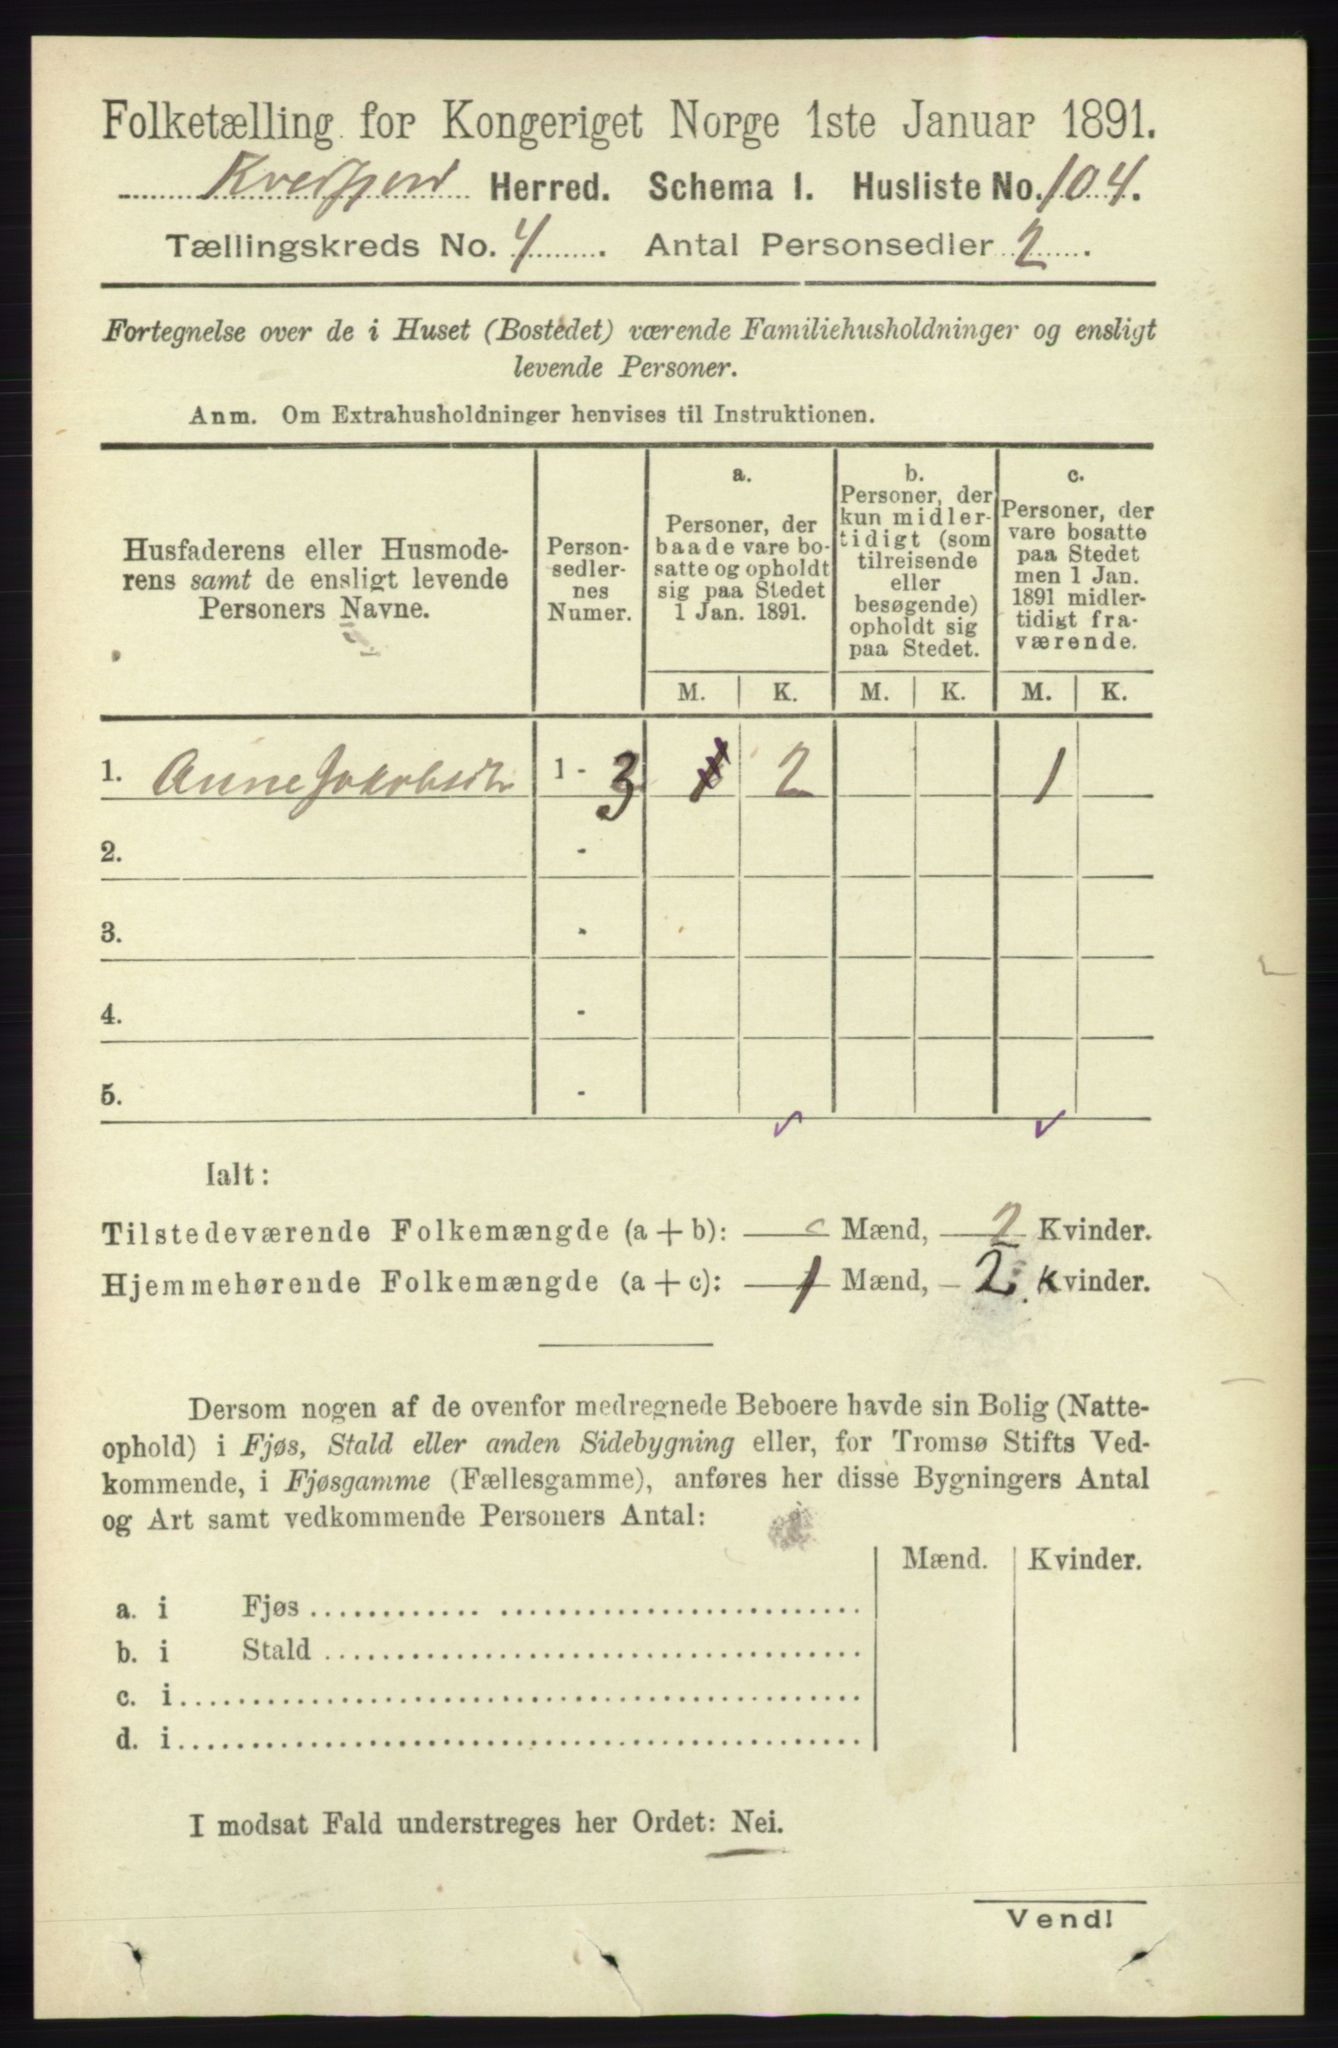 Folketælling for Kongeriget Norge 1ste Januar 1891.
Kvedfjord Herred. Schema 1. Husliste No. 104.
Tællingskreds No. 4. Antal Personsedler 2.
Fortegnelse over de i Huset (Bostedet) værende Familiehusholdninger og ensligt
levende Personer.
Anm. Om Extrahusholdninger henvises til Instruktionen.
Husfaderens eller Husmode-
rens samt de ensligt levende
Personers Navne.
Person-
sedler-
nes
Numer.
a.
Personer, der
baade vare bo-
satte og opholdt
sig paa Stedet
1 Jan. 1891.
b.
Personer, der
kun midler-
tidigt (som
tilreisende
eller
besøgende)
opholdt sig
paa Stedet.
c.
Personer, der
vare bosatte
paa Stedet
men 1 Jan.
1891 midler-
tidigt fra-
værende.
M. K. M. K. M. K.
1. Anne Jakobsdtr 1 - 3 2 1
2. -
3. -
4. -
5. -
Ialt:
Tilstedeværende Folkemængde (a + b): Mænd, 2 Kvinder.
Hjemmehørende Folkemængde (a + c): 1 Mænd, 2 Kvinder.
Dersom nogen af de ovenfor medregnede Beboere havde sin Bolig (Natte-
ophold) i Fjøs, Stald eller anden Sidebygning eller, for Tromsø Stifts Ved-
kommende, i Fjøsgamme (Fællesgamme), anføres her disse Bygningers Antal
og Art samt vedkommende Personers Antal:
Mænd. Kvinder.
a. i Fjøs
b. i Stald
c. i
d. i
I modsat Fald understreges her Ordet: Nei.
Vend!